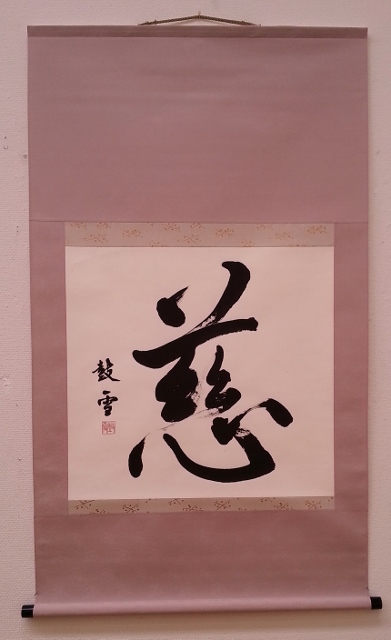 慈
鼓雪